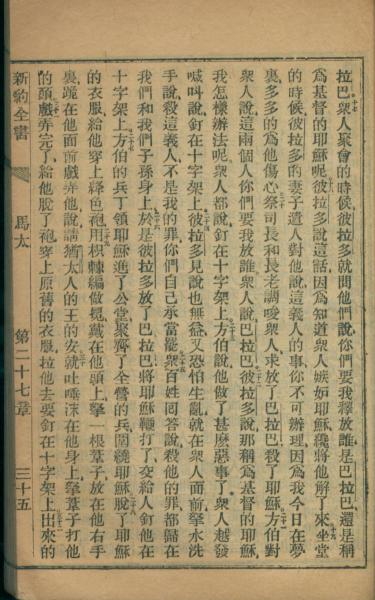 拉巴衆人聚會的時候彼拉多就問他們說你們要我釋放誰是巴拉巴還是稱
爲基督的耶穌呢彼拉多說這話因爲知道衆人嫉妬耶穌纔將他解了來坐堂
的時候彼拉多的妻子遣人對他說這義人的事你不可辦理因爲我今日在夢
裏多多的爲他傷心祭司長和長老調唆衆人求放了巴拉巴殺了耶穌方伯對
衆人說這兩個人你們要我放誰衆人說巴拉巴彼拉多說那稱爲基督的耶穌
我怎樣辦法呢衆人都說釘在十字架上方伯說他做了甚麽惡事了衆人越發
喊叫說釘在十字架上彼拉多見說也無益又恐怕生亂就在衆人面前拏水洗
手說殺這義人不是我的罪你們自己承當罷衆百姓回答說殺他的罪都歸在
我們和我們子孫身上於是彼拉多放了巴拉巴將耶穌鞭打了交給人釘他在
十字架上方伯的兵丁領耶穌進了公堂聚齊了全營的兵圍繞耶穌脫了耶穌
的衣服給他穿上絳色袍用棘編做冕戴在他頭上拏一根葦子放在他右手
裏跪在他面前戲弄他說請猶太人的王的安就吐唾沫在他身上拏葦子打他
的頭戲弄完了給他脫了袍穿上原舊的衣服拉他去要釘在十字架上出來的
新約全書 馬太 第二十七章 三十五